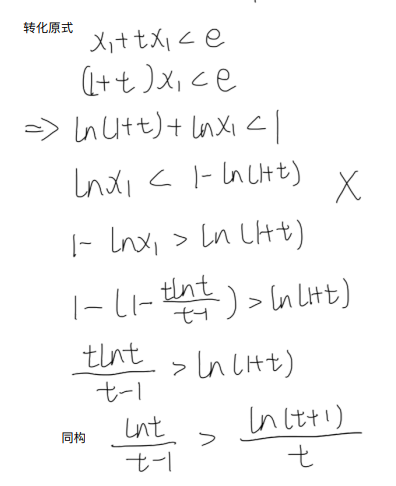 转化原式
x₁+tx₁<e
(1+t)x₁<e
=> ln(1+t)+lnx₁<1
lnx₁ < 1-ln(1+t) X
1- lnx₁ > ln(1+t)
1-(1-\frac{tlnt}{t-1})>ln(1+t)
\frac{tlnt}{t-1} > ln(1+t)
同构 \frac{lnt}{t-1} > \frac{ln(t+1)}{t}